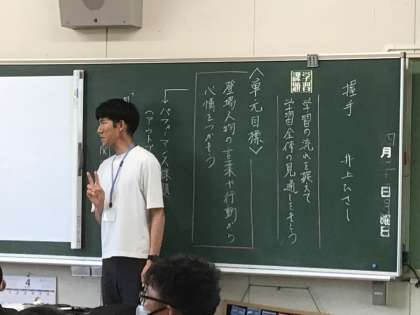 7月 日 曜日
握手 井上ひさし
学習課題
学習の流れを捉えて
学習全体の見通しをもとう
〈単元目標〉
登場人物の言葉や行動から
心情をつかもう
→パフォーマンス課題
4